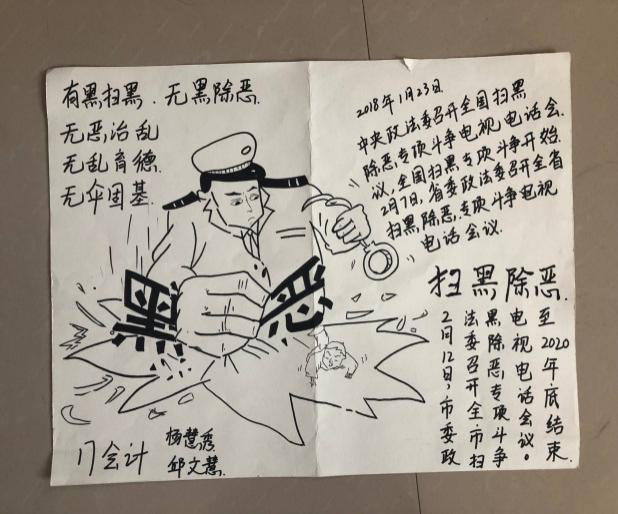 有黑扫黑.无黑除恶.
无恶治乱
无乱育德.
无伞固基.
黑 恶
17会计
杨慧秀
邱文慧.
2018年1月23日
中央政法委召开全国扫黑
除恶专项斗争电视电话会
议,全国扫黑专项斗争开始.
2月7日,省委政法委召开全省
扫黑,除恶,专项斗争电视
电话会议.
扫黑除恶.
2月12日,市委政
法委召开全市扫
黑除恶,专项斗争
电视电话会议。
至2020年底结束.